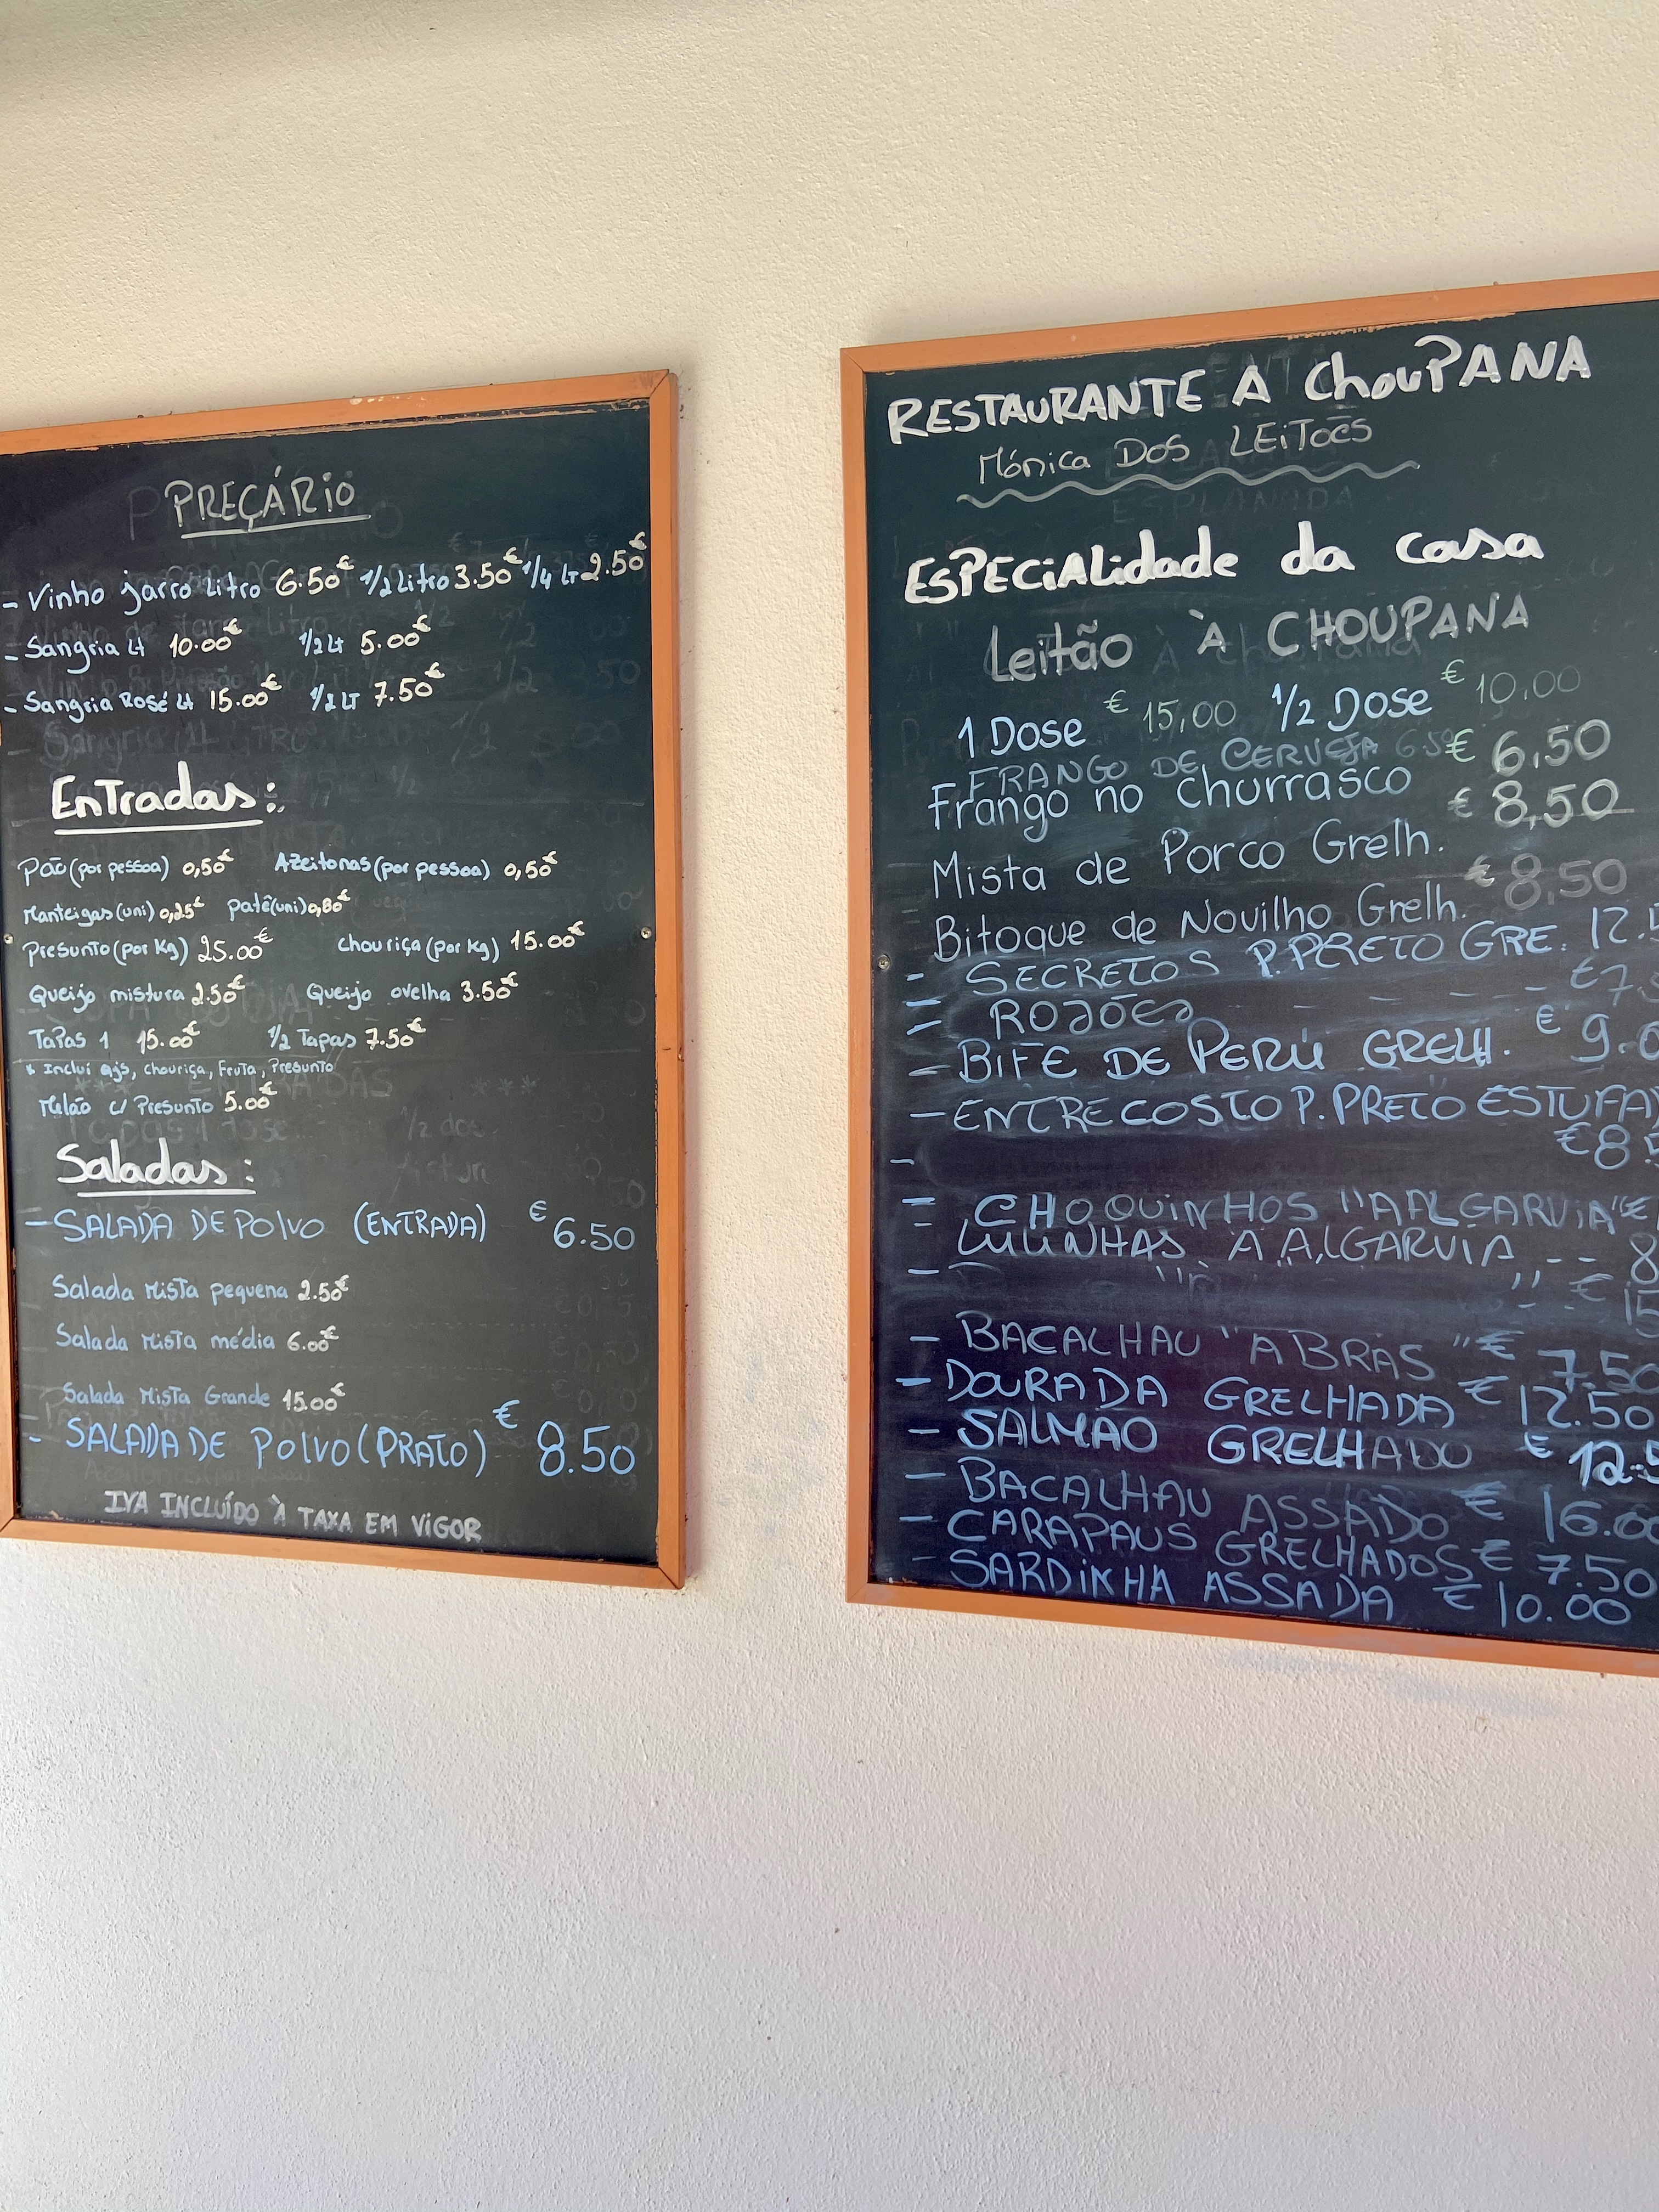 PREÇÁRIO
- Vinho jarro Litro 6.50€ 1/2 Litro 3.50€ 1/4 LT 2.50€
- Sangria Lt 10.00€ 1/2 Lt 5.00€
- Sangria Rosé Lt 15.00€ 1/2 LT 7.50€
Entradas:
Pão (por pessoa) 0,50€ Azeitonas (por pessoa) 0,50€
Manteigas (uni) 0,25€ patê (uni) 0,80€
Presunto (por kg) 25.00€ chouriça (por kg) 15.00€
Queijo mistura 2.50€ Queijo ovelha 3.50€
Tapas 1 15.00€ 1/2 Tapas 7.50€
* Incluí qjs, chouriça, Fruta, Presunto
Melão c/ Presunto 5.00€
Saladas:
- SALADA DE POLVO (ENTRADA) € 6.50
Salada Mista pequena 2.50€
Salada Mista média 6.00€
Salada Mista Grande 15.00€
- SALADA DE POLVO (PRATO) € 8.50
IVA INCLUÍDO À TAXA EM VIGOR
RESTAURANTE A ChouPANA
Mónica DOS LEiToES
ESPECiALidade da casa
Leitão À CHOUPANA
1 Dose € 15,00 1/2 Dose € 10,00
FRANGO DE CERVEJA 6.50
Frango no Churrasco € 6,50
Mista de Porco Grelh. € 8,50
Bitoque de Novilho Grelh. € 8,50
- SECRETOS P.PRETO GRE. 12.
- ROJÕES - - - - - - €7.
- BIFE DE PERÚ GRELH. € 9.0
- ENTRECOSTO P. PRETO ESTUFA
€8.
-
- CHOQUINHOS "A ALGARVIA" €
- LULINHAS A ALGARVIA -- 8
- "" " -- € 15
- BACALHAU "A BRAS" € 7.50
- DOURADA GRELHADA € 12.50
- SALMAO GRELHADO € 12.5
- BACALHAU ASSADO € 16.00
- CARAPAUS GRELHADOS € 7.50
- SARDINHA ASSADA € 10.00